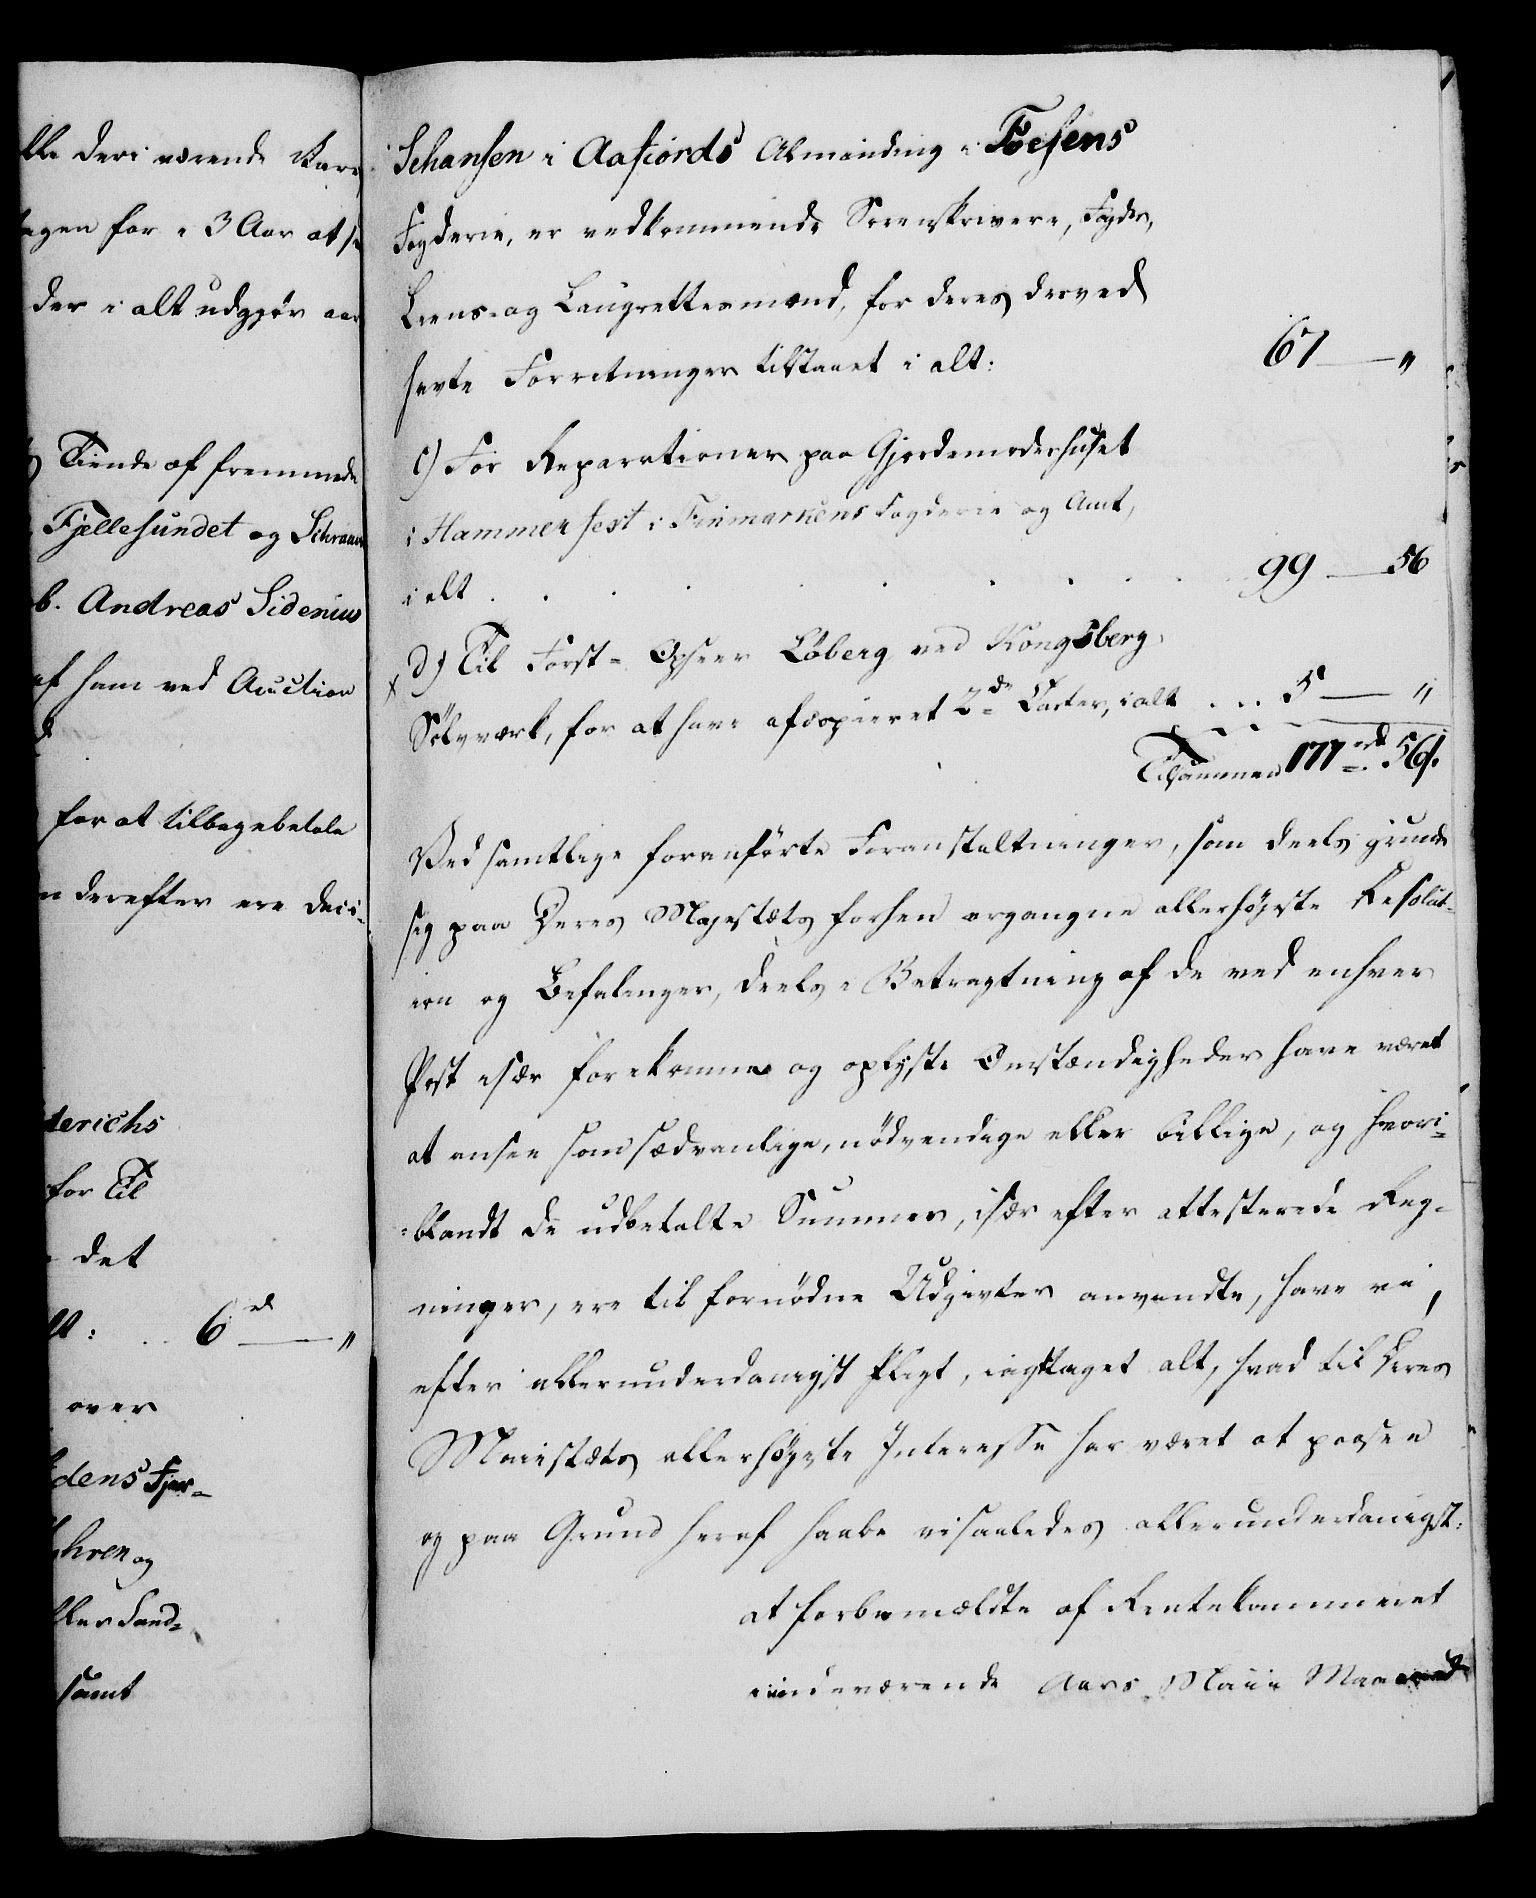 lle deri værende Kars
agen for 3 Aar at
der i alt udgjør
Tiende af fremmede
Fjellesundet og Schraav
b. Andreas Sidenius
af ham ved Auction
for at tilbagebetale
n derefter ere deci-
derichs
for Til
det
lt: .. 6 rd — "
over
dens Fjer-
hren og
ller Sand-
samt
Schansen i Aafiords Alminding i Fosens
Fogderie, er vedkommende Sorenskrivere, Fogder,
Leens- og Laugrettesmænd, for deres derved
havte Forretninger tilstaaet i alt: 67 — "
c) For Reparationer paa Gjordemoderhuset
i Hammerfest i Finmarkens Fogderie og Amt,
i alt . . . . . . . 99 — 56
x d) Til Forst-Opseer Løberg ved Kongsberg
Sölvværk, for at have afcopieret 2de Carter, i alt ... 5 — "
Tilsammen 177 rd 56 s.
Ved samtlige foranførte Foranstaltninger, som deels grunde
sig paa Deres Majestæts forhen ergangne allerhøjeste Resolut-
ion og Befalinger, deels i Betragtning af de ved enhver
Post især forekomne og oplyste Omstændigheder have været
at ansee som sædvanlige, nödvendige eller billige, og hvori-
=blandt de udbetalte Summer, især efter attesterede Reg-
ninger, ere til fornödne Udgivter anvendte, have vi,
efter allerunderdanigst Pligt, iagttaget alt, hvad til Deres
Maiestæts allerhøyeste Interesse har været at paasee
og paa Grund heraf haabe vi saaledes allerunderdanigst:
at forbemældte af Rentekammeret
i indeværende Aars Maii Maaned